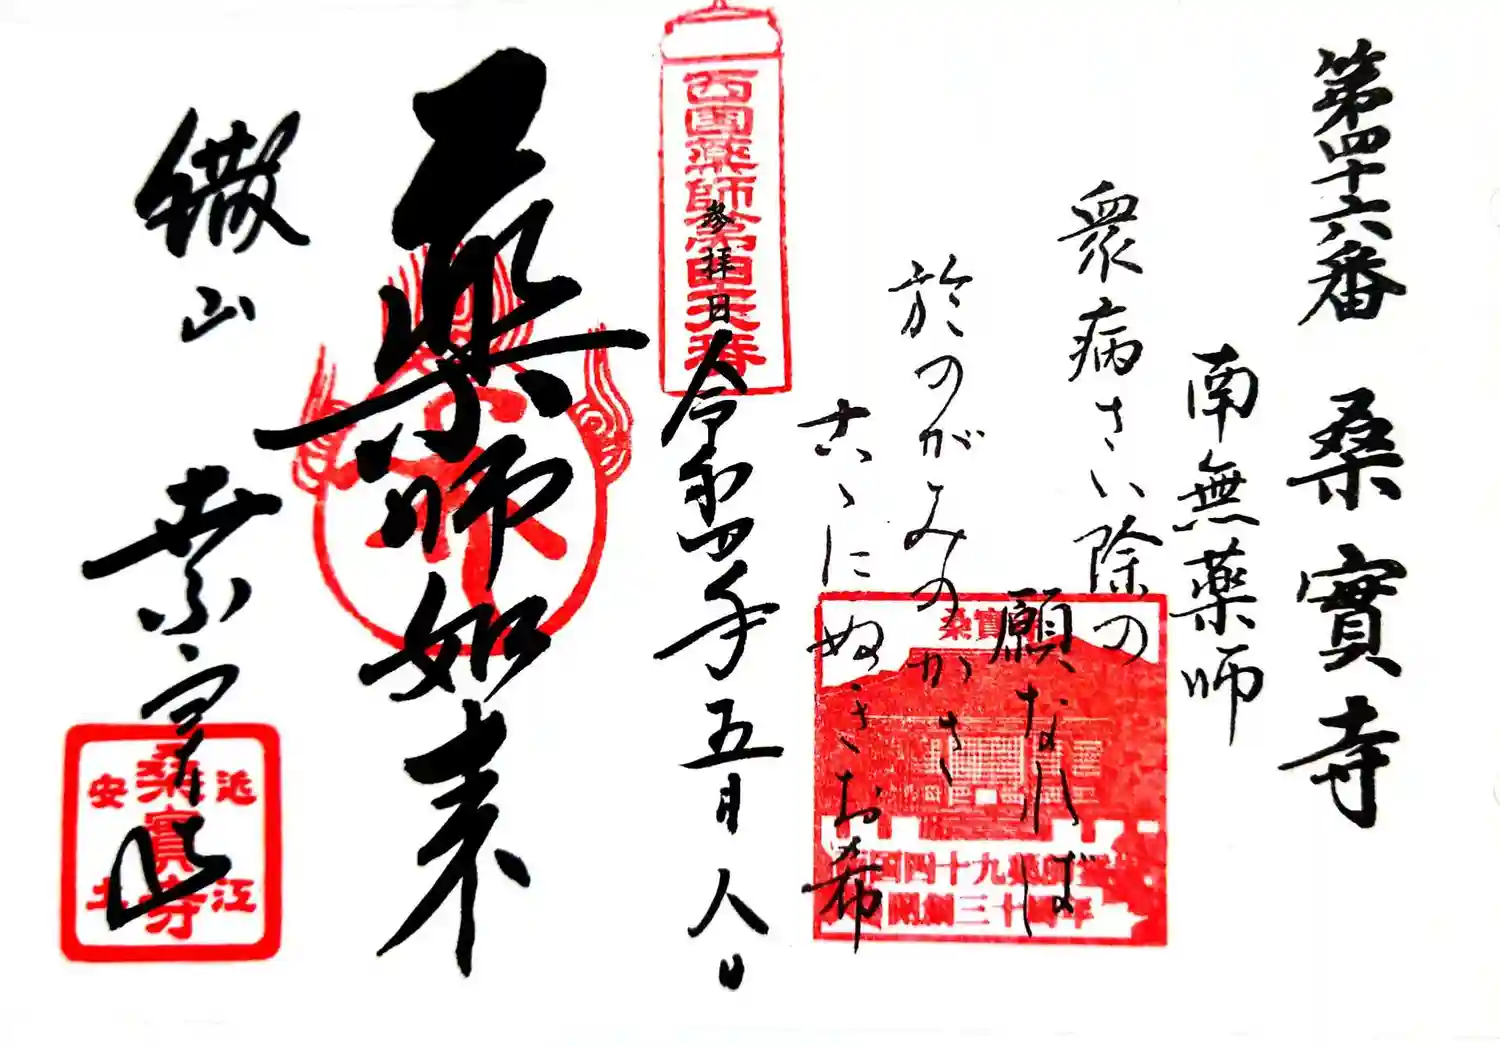 第四十六番 桑實寺
南無薬師
衆病さい除の
願なれば
於のがみのかさ
こゝにぬぎお希
西國薬師第四十六番
参拝日
令和四年五月八日
薬師如来
繖山
桑実寺
桑實寺
近江
安土
桑實寺
西国四十九薬師霊場
開創三十周年